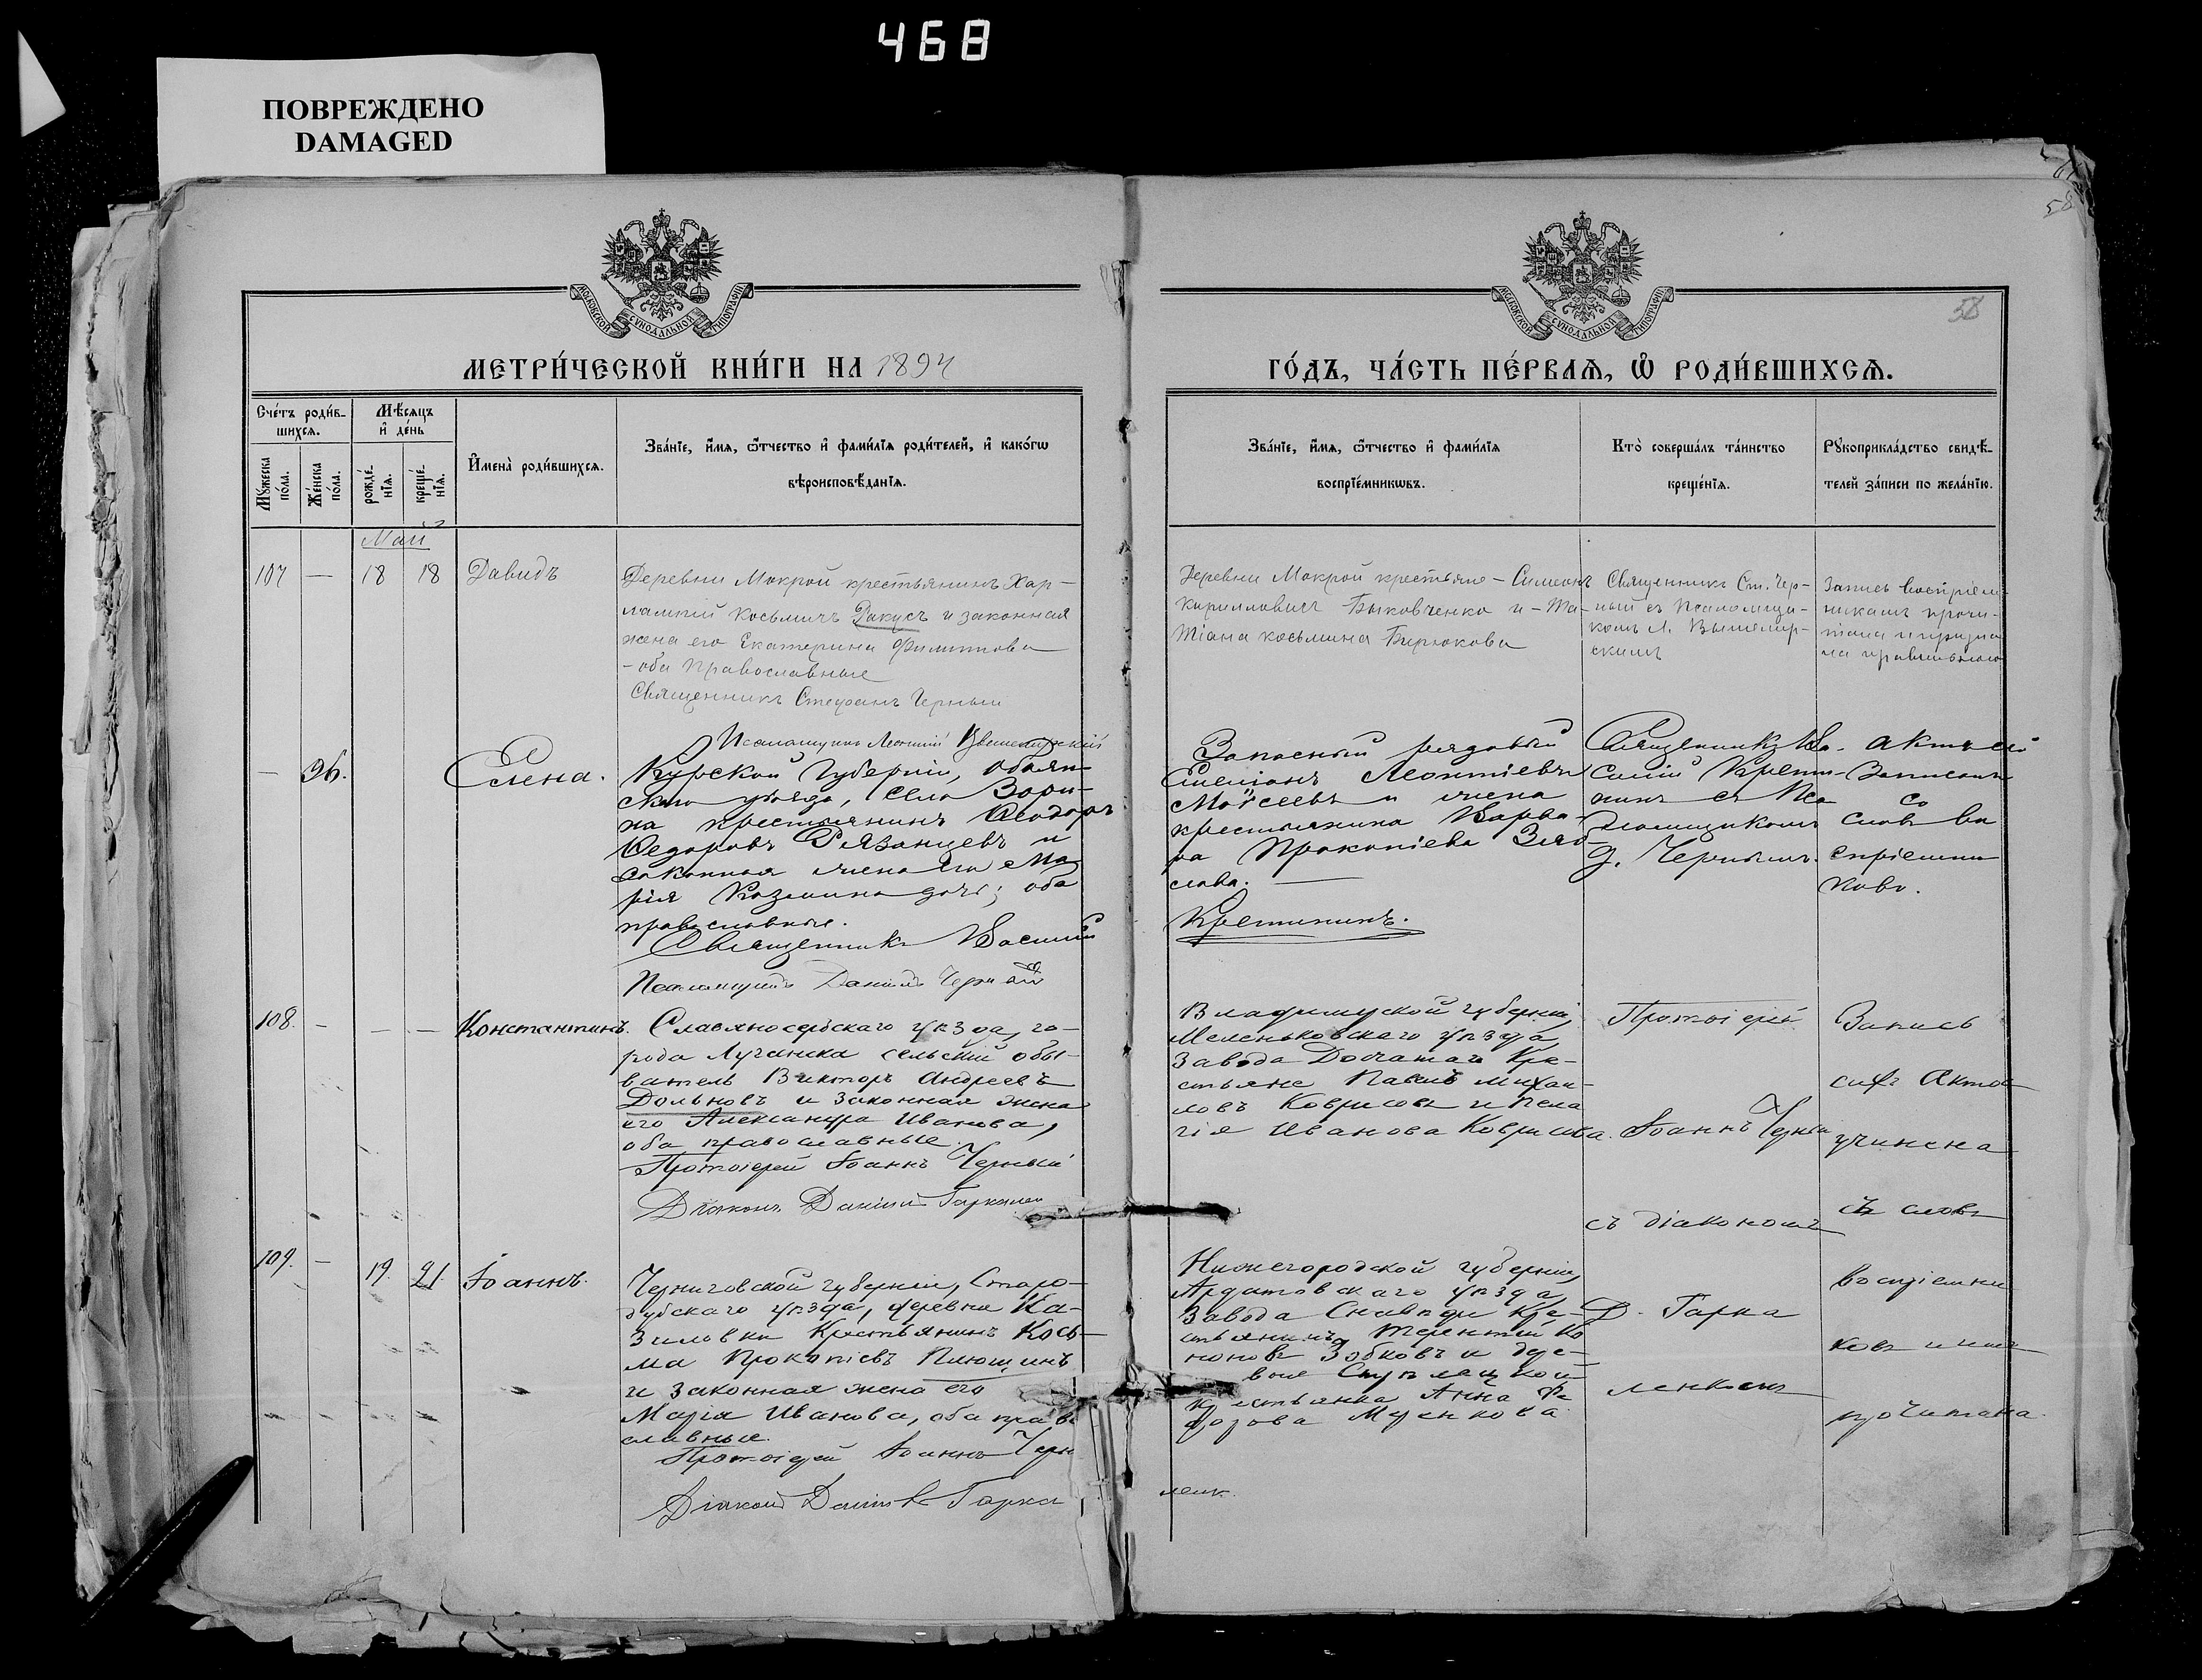 468
ПОВРЕЖДЕНО
DAMAGED
58
58
МОСКОВСКОЙ СѴНОДАЛЬНОЙ ТИПОГРАФІИ
МОСКОВСКОЙ СѴНОДАЛЬНОЙ ТИПОГРАФІИ
МЕТРИ́ЧЕСКОЙ КНИ́ГИ НА 1894
ГО́ДЪ, ЧА́СТЬ ПЕ́РВАѦ, Ѡ҆ РОДИ́ВШИХСѦ.
Сче́тъ роди́в-
шихсѧ.
Мꙋ́жеска по́ла.
Же́нска по́ла.
Мѣ́сѧцъ
и҆ де́нь
рожде́нїѧ.
креще́нїѧ.
И҆мена̀ роди́вшихсѧ.
Зва́нїе, и҆́мѧ, ѻ҆́тчество и҆ фами́лїѧ роди́телей, и҆ како́гѡ
вѣроисповѣ́данїѧ.
Зва́нїе, и҆́мѧ, ѻ҆́тчество и҆ фами́лїѧ
воспрїе́мникѡвъ.
Кто̀ соверша́лъ та́инство
креще́нїѧ.
Рꙋкоприкла́дство свидѣ́-
телей за́писи по жела́нїю.
Май
107 — 18 18 Давидъ
Деревни Мокрой крестьянинъ Хар-
лампій Косьмичъ Ракусъ и законная
жена его Екатерина Филиппова
- оба Православные
Священникъ Стефанъ Черный
Псаломщикъ Леонтій
Деревни Мокрой крестьяне - Симеонъ
Кирилловичъ Быковченко и - Та-
тіана Косьмина Бирюкова
Священникъ Ст. Чер-
ный съ Псаломщи-
комъ Л.
скимъ
Запись воспріем-
никамъ прочи-
тана и призна
на правильною
— 96. Елена.
Курской Губерніи, Обоян-
скаго уѣзда, села Зори-
на крестьянинъ Ѳеодоръ
Ѳедоровъ Рязанцевъ и
законная жена его Ма-
рія Козмина дочь; оба
православные.
Священникъ Василій
Псаломщикъ Даніилъ Черный
Запасный рядовый
Симеонъ Леонтіевъ
Моѵсеевъ и жена
крестьянина Варва-
ра Прокопіева
слава. —
Крытининъ.
Священникъ Ва-
силій
нинъ съ Пса-
ломщикомъ
Д. Чернымъ.
Актъ сей
Записанъ
со
словъ во
спріемни
ковъ.
108. — — — Константинъ.
Славяносербскаго уѣзда, го-
рода Луганска сельскій обы-
ватель Викторъ Андреевъ
Дольновъ и законная жена
его Александра Иванова,
оба православные.
Протоіерей Іоаннъ Черный
Діаконъ Даніилъ Гарка
Владимирской губерніи,
Меленьковскаго уѣзда,
Завода Досчатаго Кре-
стьяне Павелъ Михаи-
ловъ Ковриговъ и Пела
гія Иванова
Протоіерей
Іоаннъ Черный
съ діакономъ
Д. Гарка
ленкомъ
Запись
сихъ Актовъ
учинена
съ словъ
воспріемни
ковъ и имъ
прочитана.
109. — 19. 21. Іоаннъ.
Черниговской губерніи, Старо-
дубскаго уѣзда, деревни Ка-
зиловки Крестьянинъ Кось-
ма Прокопіевъ Плющинъ
и законная жена его
Марія Иванова, оба право
славные.
Протоіерей Іоаннъ Черн
Діаконъ Даніилъ Гарка
ленк.
Нижегородской губерніи,
Ардатовскаго уѣзда,
Завода Снаведи Кре-
стьянинъ Терентій Ко
ноновъ Зобковъ и
крестьянка Анна Фе
дорова